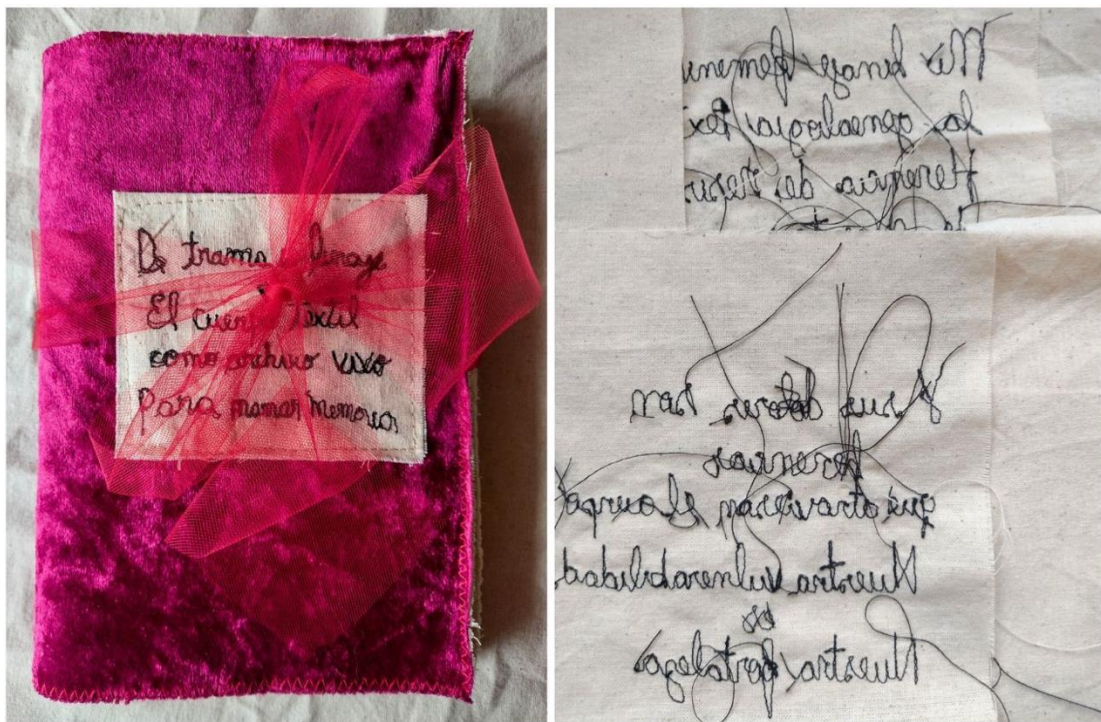 De trama linaje
El cuerpo textil
como archivo vivo
Para mamar Memorias
Mi linaje femenin
la genealogia tex
Herencia
Y sus dolores son
herencias
que atraviesan El cuerpo
Nuestra vulnerabilidad
es
Nuestra fortaleza